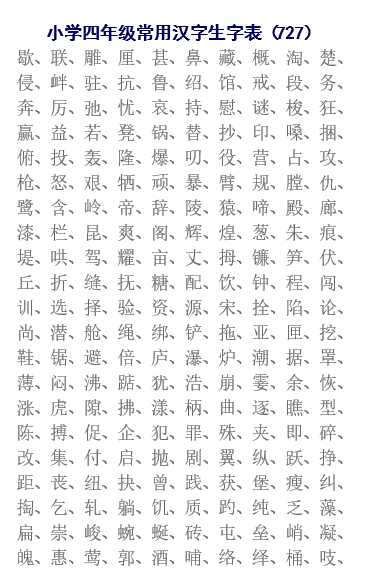 小学四年级常用汉字生字表（727）
歇、联、雕、厘、甚、鼻、藏、概、淘、楚、
侵、衅、驻、抗、鲁、绍、馆、戒、段、务、
奔、厉、弛、忧、哀、持、慰、谜、梭、狂、
赢、益、若、凳、锅、替、抄、印、嗓、捆、
俯、投、轰、隆、爆、叨、役、营、占、攻、
枪、怒、艰、牺、顽、暴、臂、规、膛、仇、
鹭、含、岭、帝、辞、陵、猿、啼、殿、廊、
漆、栏、昆、爽、阁、辉、煌、葱、朱、痕、
堤、哄、驾、耀、亩、丈、拇、镰、笋、伏、
丘、折、缝、抚、糖、配、饮、钟、程、闯、
训、选、择、验、资、源、宋、拴、陷、论、
尚、潜、舱、绳、绑、铲、拖、亚、匣、挖、
鞋、锯、避、倍、庐、瀑、炉、潮、据、罩、
薄、闷、沸、踮、犹、浩、崩、霎、余、恢、
涨、虎、隙、拂、漾、柄、曲、逐、瞧、型、
陈、搏、促、企、犯、罪、殊、夹、即、碎、
改、集、付、启、抛、剧、翼、纵、跃、挣、
距、丧、纽、抉、曾、践、获、堡、瘦、纠、
掏、乞、轧、躺、饥、质、趵、纯、乏、藻、
扁、崇、峻、蜿、蜒、砖、屯、垒、峭、凝、
魄、惠、莺、郭、酒、哺、络、绎、桶、吱、